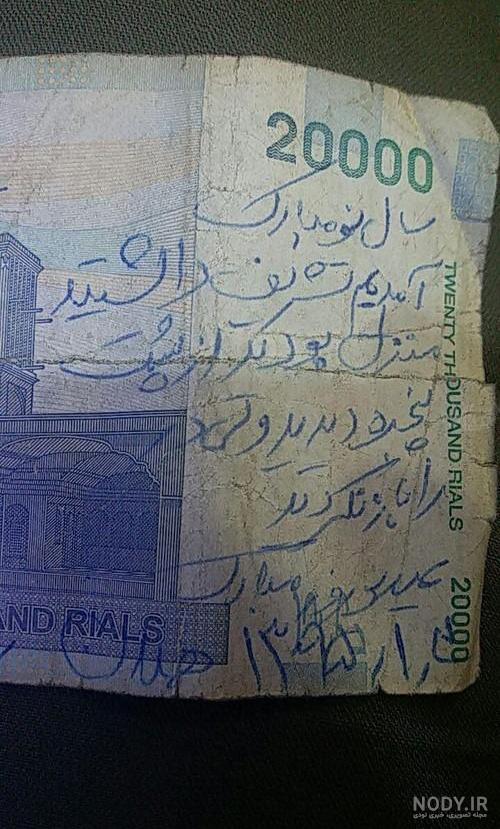 20000
سال نو مبارک
آمدیم تشریف نداشتید
منزل پودیگر از پشت
پنجره دیدید و در
را باز نکردید
عیدی هم مبارک
۱۳۹۵
TWENTY THOUSAND RIALS
20000
AND RIALS
NODY.IR
مجله تصویری، خبری نودی